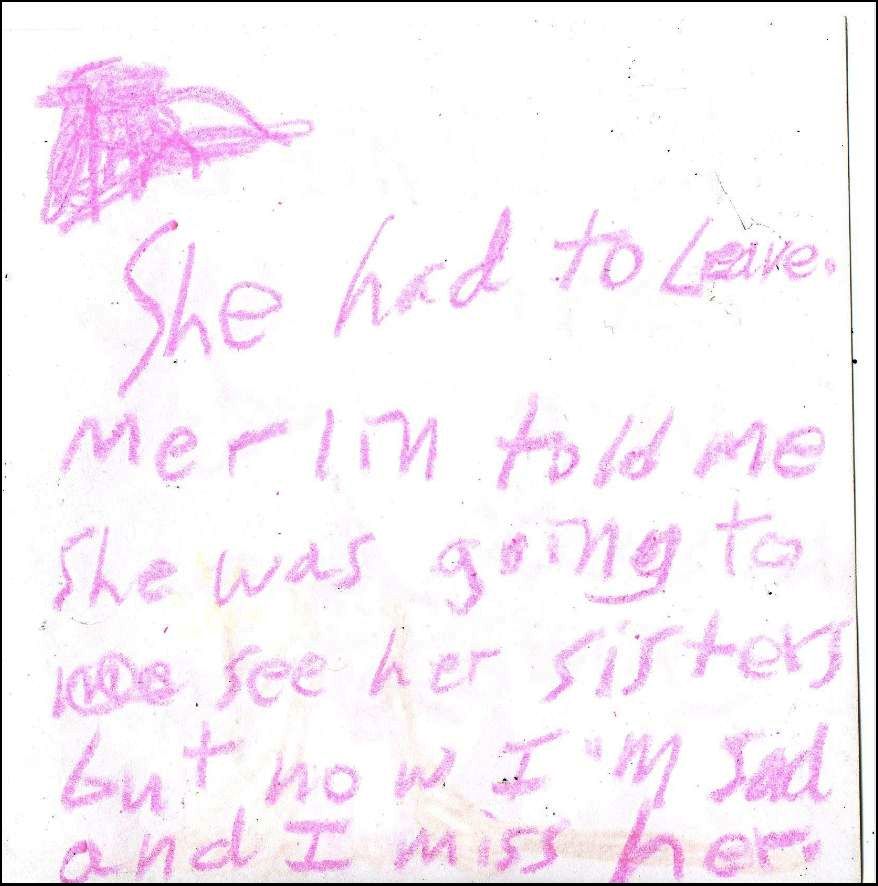 She had to Leave.
Merlin told me
she was going to
see her sisters
but now I'm sad
and I miss her.